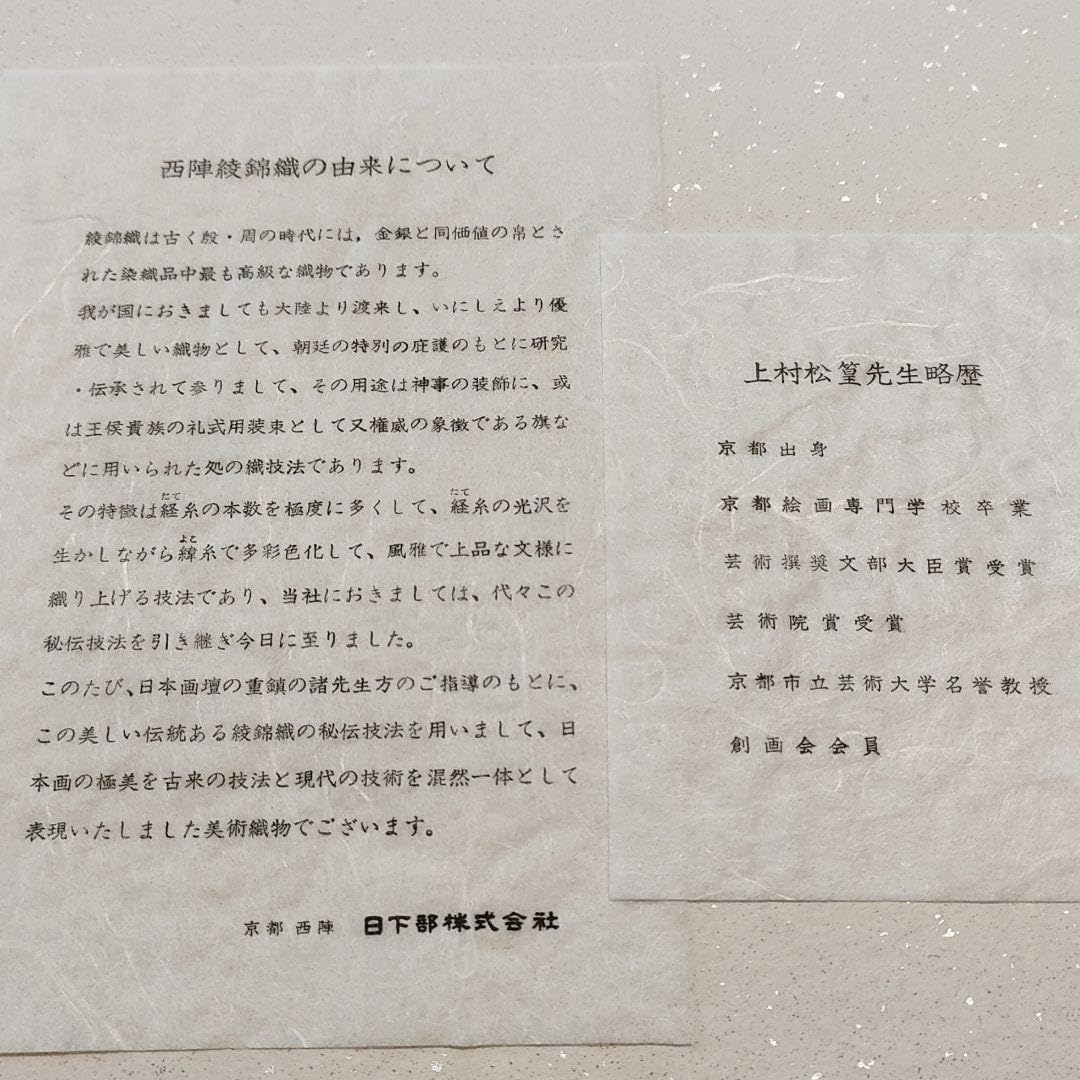 西陣綾錦織の由来について
綾錦織は古く殷・周の時代には，金銀と同価値の帛とさ
れた染織品中最も高級な織物であります。
我が国におきましても大陸より渡来し、いにしえより優
雅で美しい織物として、朝廷の特別の庇護のもとに研究
・伝承されて参りまして、その用途は神事の装飾に、或
は王侯貴族の礼式用装束として又権威の象徴である旗な
どに用いられた処の織技法であります。
その特徴は経糸の本数を極度に多くして、経糸の光沢を
生かしながら緯糸で多彩色化して、風雅で上品な文様に
織り上げる技法であり、当社におきましては、代々この
秘伝技法を引き継ぎ今日に至りました。
このたび、日本画壇の重鎮の諸先生方のご指導のもとに、
この美しい伝統ある綾錦織の秘伝技法を用いまして、日
本画の極美を古来の技法と現代の技術を混然一体として
表現いたしました美術織物でございます。
京都西陣 日下部株式会社
上村松篁先生略歴
京都出身
京都絵画専門学校卒業
芸術撰奨文部大臣賞受賞
芸術院賞受賞
京都市立芸術大学名誉教授
創画会会員